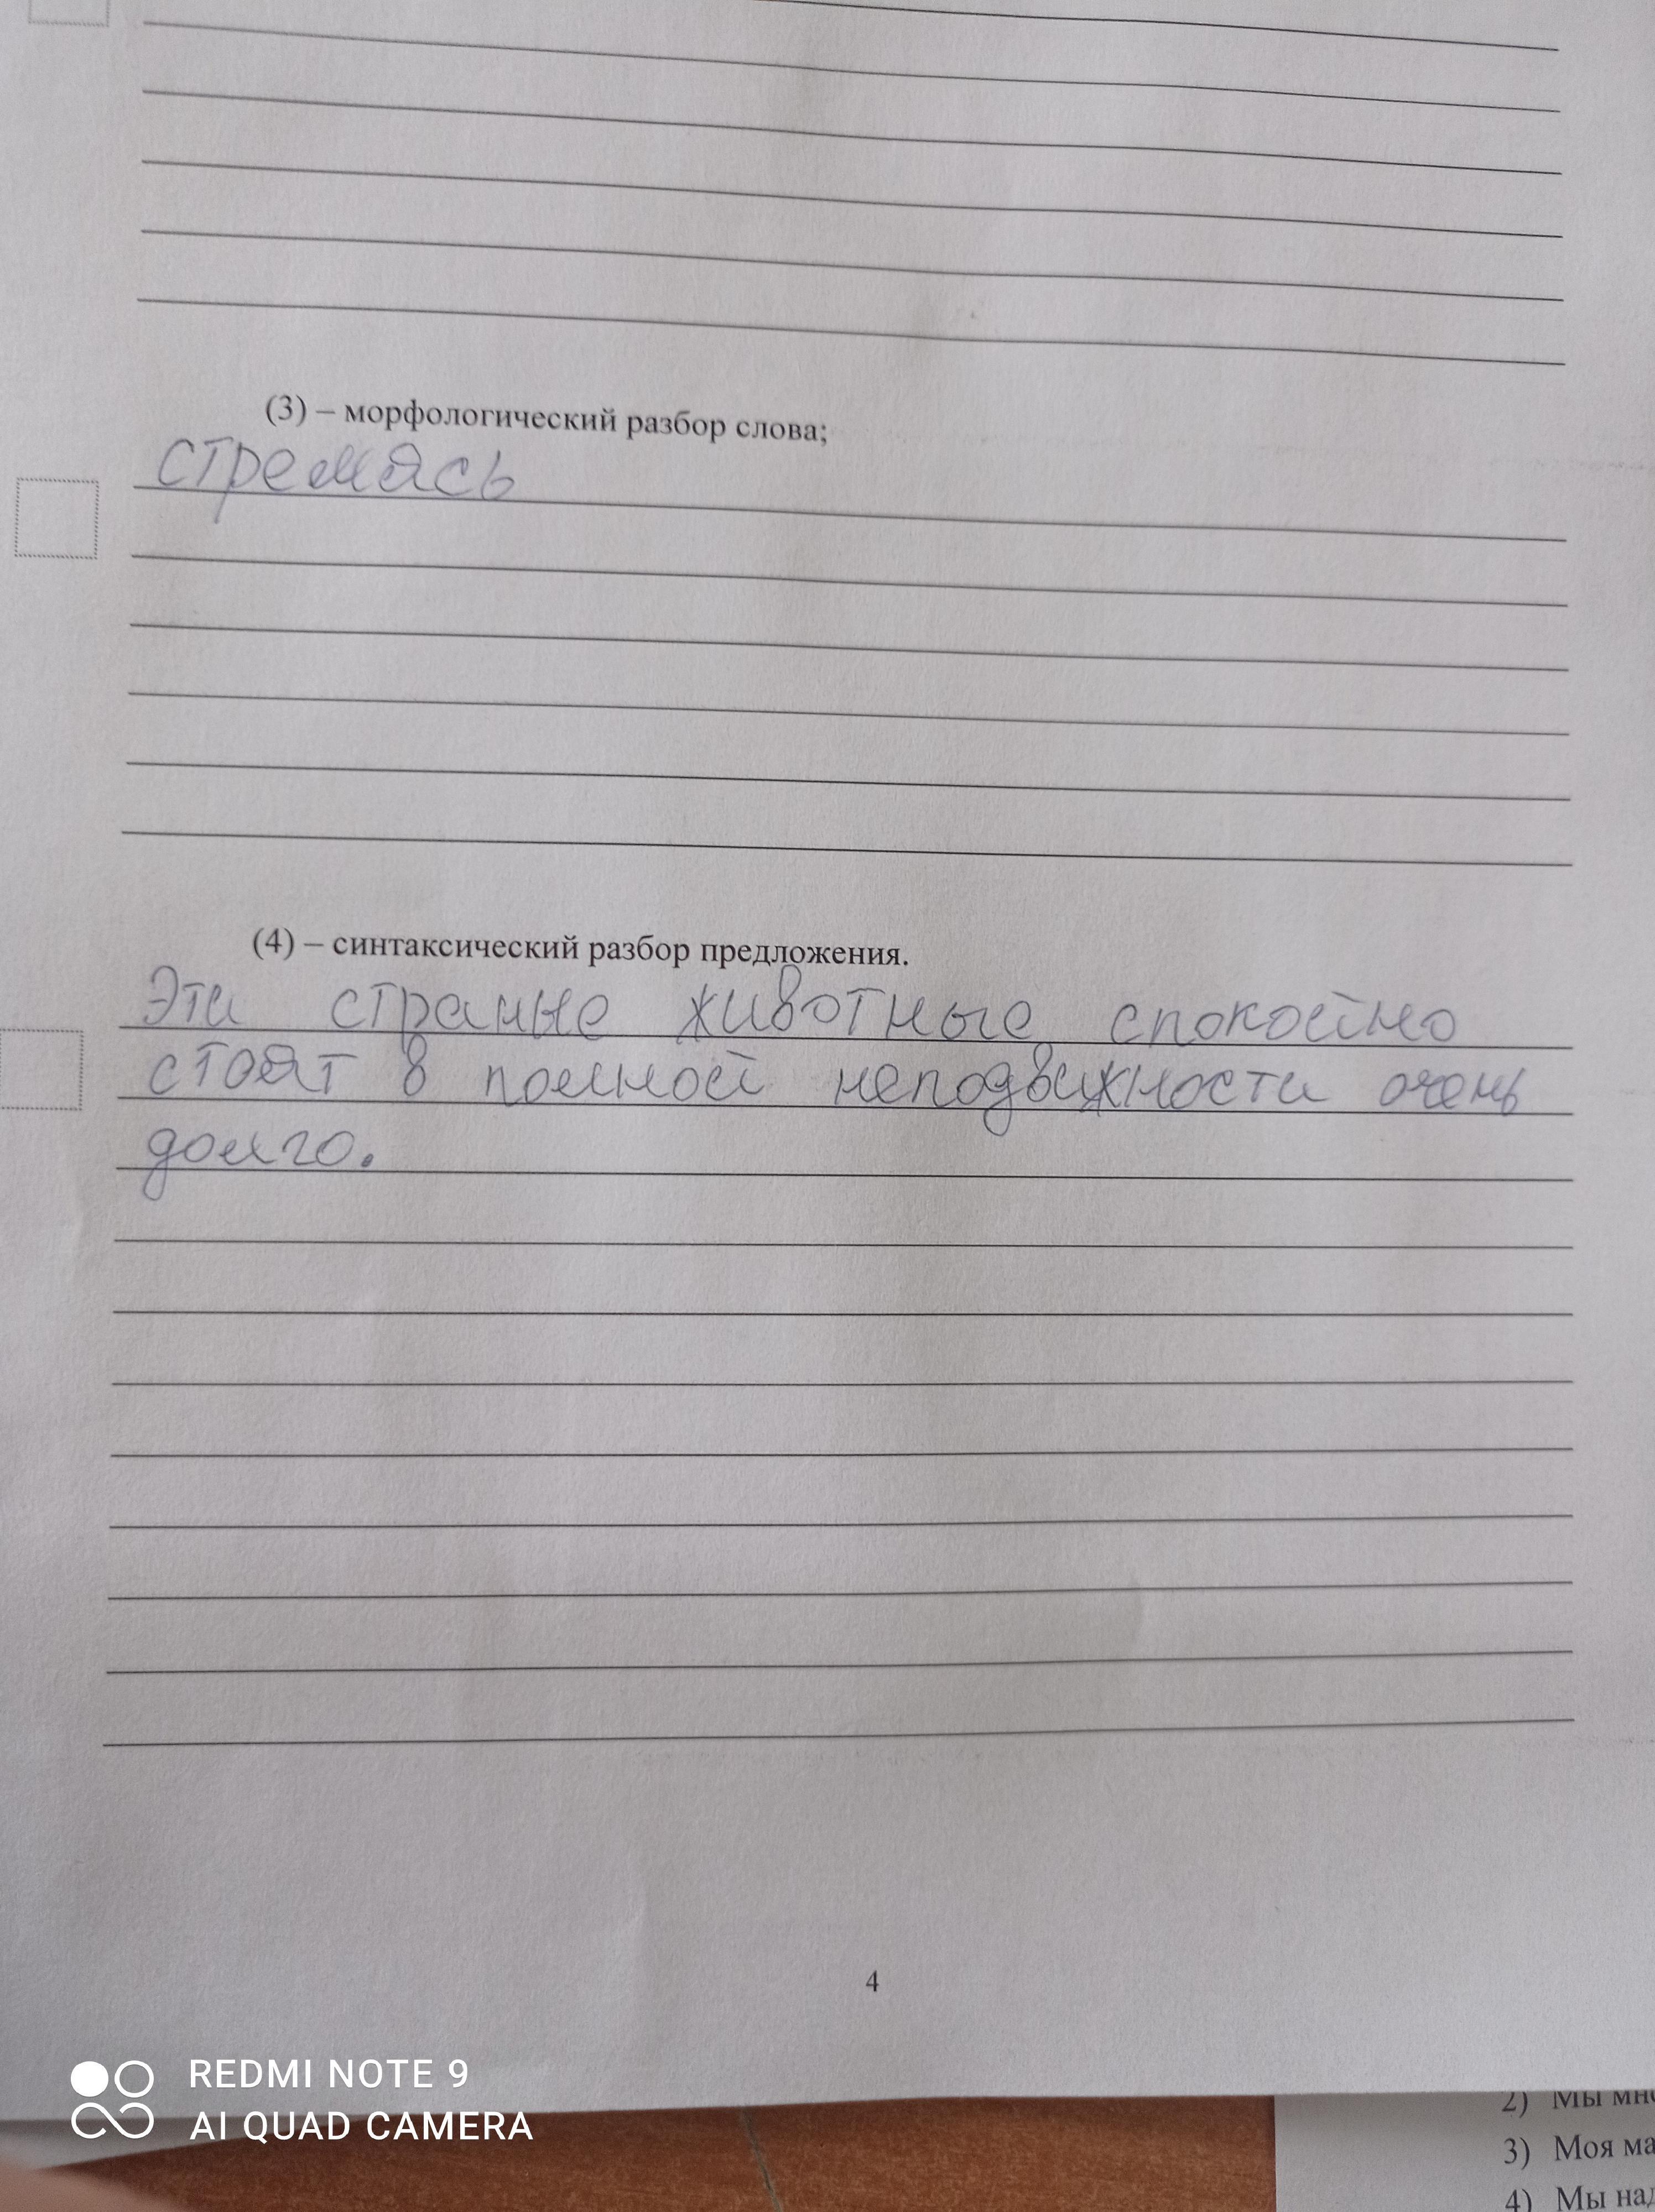 (3) – морфологический разбор слова;
стремясь
(4) – синтаксический разбор предложения.
Эти страные животные спокойно
стоят в полной неподвижности очень
долго.
4
REDMI NOTE 9
AI QUAD CAMERA
2) Мы
3) Моя
4) Мы